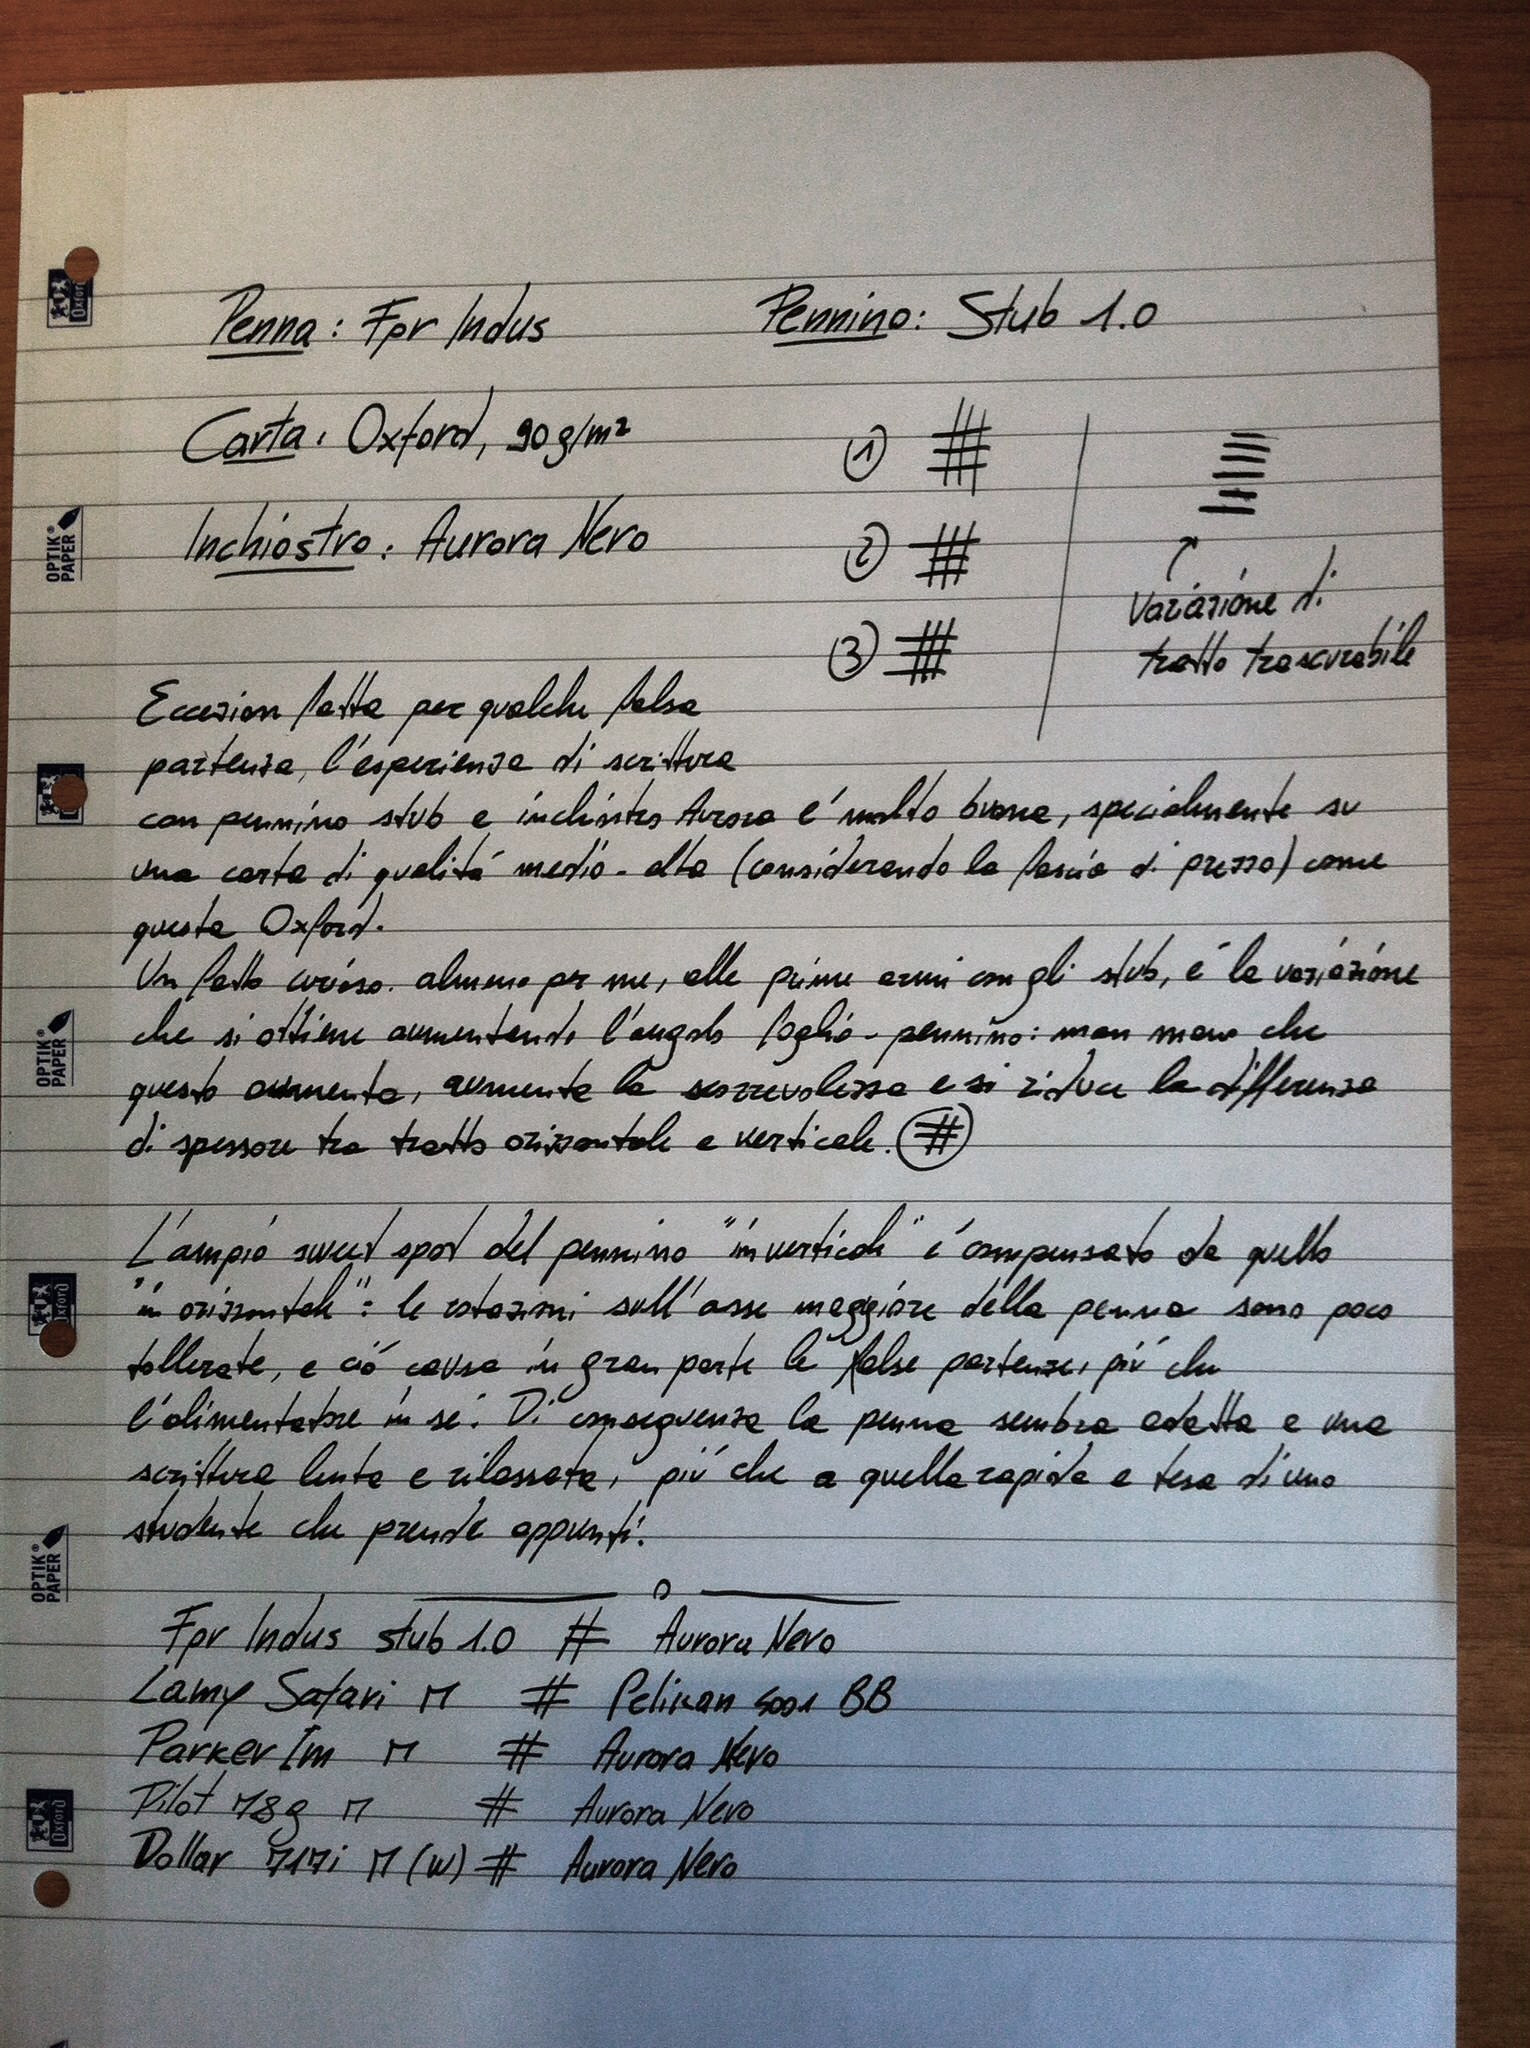 Penna: Fpr Indus
Pennino: Stub 1.0
Carta: Oxford, 90 g/m²
Inchiostro: Aurora Nero
1
2
3
Variazione di
tratto trascurabile
Eccezion fatta per qualche falsa
partenza, l'esperienza di scrittura
con pennino stub e inchiostro Aurora é molto buona, specialmente su
una carta di qualitá medio-alta (considerando la fascia di prezzo) come
questa Oxford.
Un fatto curioso. almeno per me, alle prime armi con gli stub, é la variazione
che si ottiene aumentando l'angolo foglio-pennino: man mano che
questo aumenta, aumenta la scorrevolezza e si riduce la differenza
di spessore tra tratto orizzontale e verticale. #
L'ampio sweet spot del pennino "in verticale" é compensato da quello
"in orizzontale": le rotazioni sull'asse maggiore della penna sono poco
tollerate, e ció causa in gran parte le false partenze, piú che
l'alimentatore in sé. Di conseguenza la penna sembra adatta a una
scrittura lenta e rilassata, piú che a quella rapida e tesa di uno
studente che prende appunti.
Fpr Indus stub 1.0 # Aurora Nero
Lamy Safari M # Pelikan 4001 BB
Parker Im M # Aurora Nero
Pilot 78g M # Aurora Nero
Dollar 717i M (w) # Aurora Nero
OXFORD
OPTIK® PAPER
OPTIK® PAPER
OXFORD
OPTIK® PAPER
OXFORD